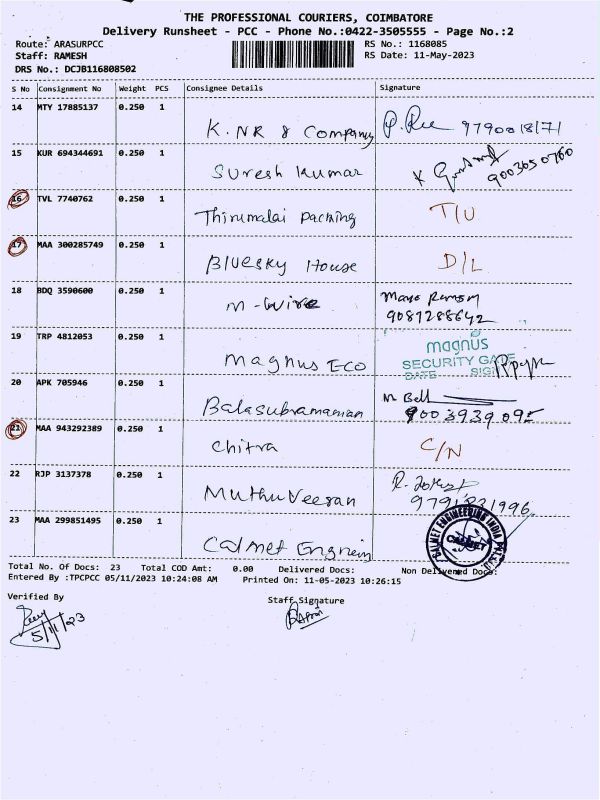 THE PROFESSIONAL COURIERS, COIMBATORE
Delivery Runsheet - PCC - Phone No.:0422-3505555 - Page No.:2
Route: ARASURPCC RS No.: 1168085
Staff: RAMESH RS Date: 11-May-2023
DRS No.: DCJB116808502
S No Consignment No Weight PCS Consignee Details Signature
14 MTY 17885137 0.250 1
K. NR & Company 9790018171
15 KUR 694344691 0.250 1
Suresh Kumar 9003650760
16 TVL 7740762 0.250 1
Thirumalai Packing T/U
17 MAA 300285749 0.250 1
Bluesky House D/L
18 BDQ 3590600 0.250 1
M-Wire 9087288642
19 TRP 4812053 0.250 1
Magnus ECO magnus
SECURITY GATE
DATE SIG
20 APK 705946 0.250 1
Balasubramanian M Bell
9003939095
21 MAA 943292389 0.250 1
Chitra C/N
22 RJP 3137378 0.250 1
Muthu Veeran 9791821996
23 MAA 299851495 0.250 1
Calmet Engneing
Total No. Of Docs: 23 Total COD Amt: 0.00 Delivered Docs: Non Delivered Docs:
Entered By :TPCPCC 05/11/2023 10:24:08 AM Printed On: 11-05-2023 10:26:15
Verified By Staff Signature
5/11/23